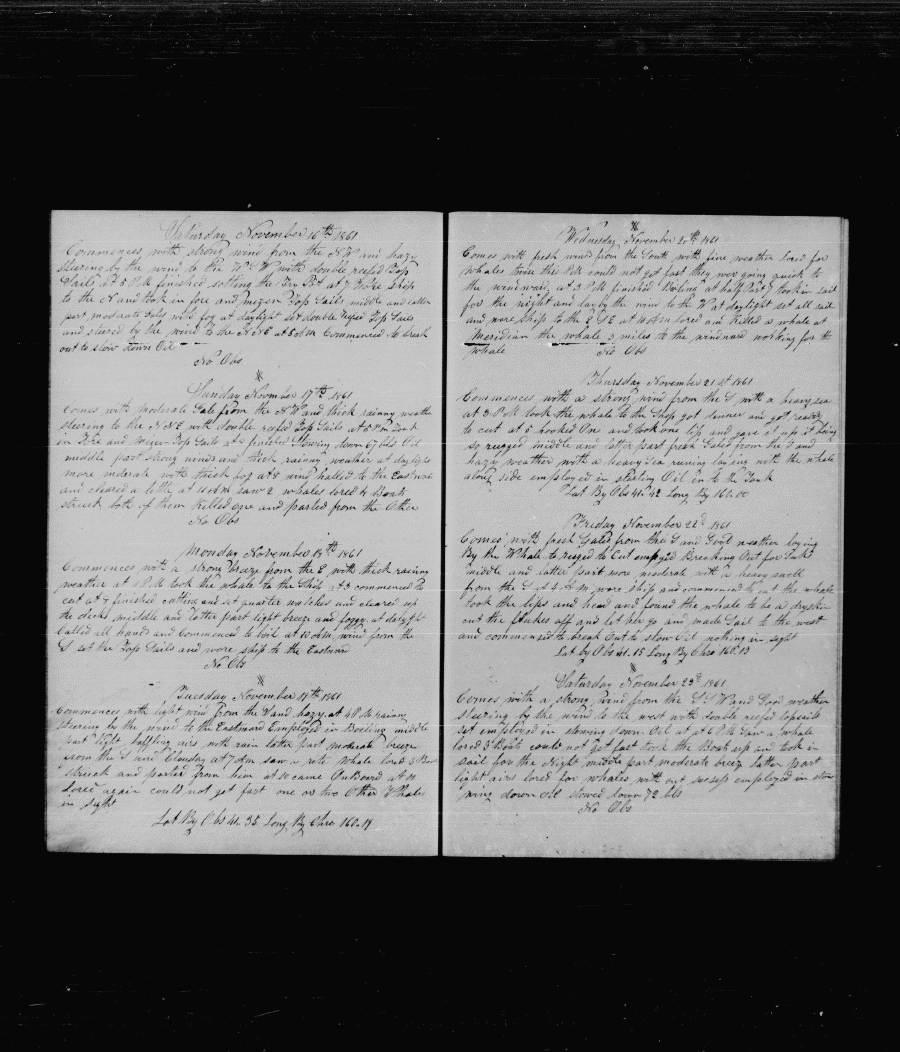 Saturday November 16th 1861
Commences with strong wind from the N.W and hazy
steering by the wind to the W S W with double reefed Top
Sails at 5 P.M finished setting the Try Pot at 7 Wore Ship
to the N and took in fore and mizen Top Sails middle and latter
part moderate Gales with fog at daylight set double reefed Top Sails
and steered by the wind to the N N E at 8 A M Commenced to break
out to stow down Oil
No Obs
Sunday November 17th 1861
Comes with moderate Gale from the N W and thick rainny weather
steering to the N N E with double reefed Top Sails at 3 P M Took
in Fore and Mizen Top Sails at finished Stowing down 67 bbls Oil
middle part strong winds and thick rainny weather at daylight
more moderate with thick fog at 8 wind halled to the Eastward
and cleared a little at 10 A M saw 2 whales lored 4 Boats
struck both of them Killed one and parted from the Other
No Obs
Monday November 18th 1861
Commences with a strong breeze from the E with thick rainny
weather at 1 P.M took the whale to the Ship at 3 commenced to
cut at 7 finished cutting and set quarter watches and cleared up
the decks middle and latter part light breeze and foggy at daylight
Called all hands and commenced to boil at 10 A M wind from the
S set the Top Sails and wore ship to the Eastward
No Obs
Tuesday November 19th 1861
Commences with light wind from the S and hazy at 4 P.M rainny
steering by the wind to the Eastward Employed in Boiling middle
part light baffling airs with rain latter part moderate breeze
from the S and Clouday at 7 A M saw a rite whale lored 3 Boats
struck and parted from him at 10 came On Board at 11
Lored again could not get fast one or two Other Whales
in sight
Lat By Obs 41.35 Long By Chro 160.19
Wednesday November 20th 1861
Comes with fresh wind from the South with fine weather lored for
whales twice this P.M could not get fast they were going quick to
the windward at 3 P M finished Boiling at half Past 7 took in sail
for the night and lay by the wind to the W at daylight set all sail
and wore ship to the E S E at 10 A M lored and Killed a whale at
Meridian the whale 3 miles to the windward working for the
whale No Obs
Thursday November 21st 1861
Commences with a strong wind from the S with a heavy sea
at 3 P M took the whale to the Ship got dinner and got ready
to cut at 5 hooked On and took one lip and gave it up it being
so rugged middle and latter part fresh Gales from the S and
hazy weather with a heavy sea runing laying with the whale
along side employed in starting Oil in to the Tank
Lat By Obs 41.42 Long By 160.00
Friday November 22d 1861
Comes with fresh Gales from the S and Good weather laying
By the Whale to rugged to Cut employed Breaking Out for Tank
middle and latter part more moderate with a heavy swell
from the S at 4 A.M wore ship and commenced to cut the whale
took the lips and head and found the whale to be a dryskin
cut the flukes off and let her go and made Sail to the west
and commenced to break Out to stow Oil nothing in sight
Lat by Obs 41.15 Long By Chro 160.13
Saturday November 23d 1861
Comes with a strong wind from the S S W and Good weather
steering by the wind to the west with double reefed topsails
set employed in stowing down Oil at 6 P.M Saw a whale
lored 3 Boats could not get fast took the Boats up and took in
sail for the Night middle part moderate breez latter part
light airs lored for whales with out sucsess employed in stow
wing down Oil stowed down 72 bbls
No Obs